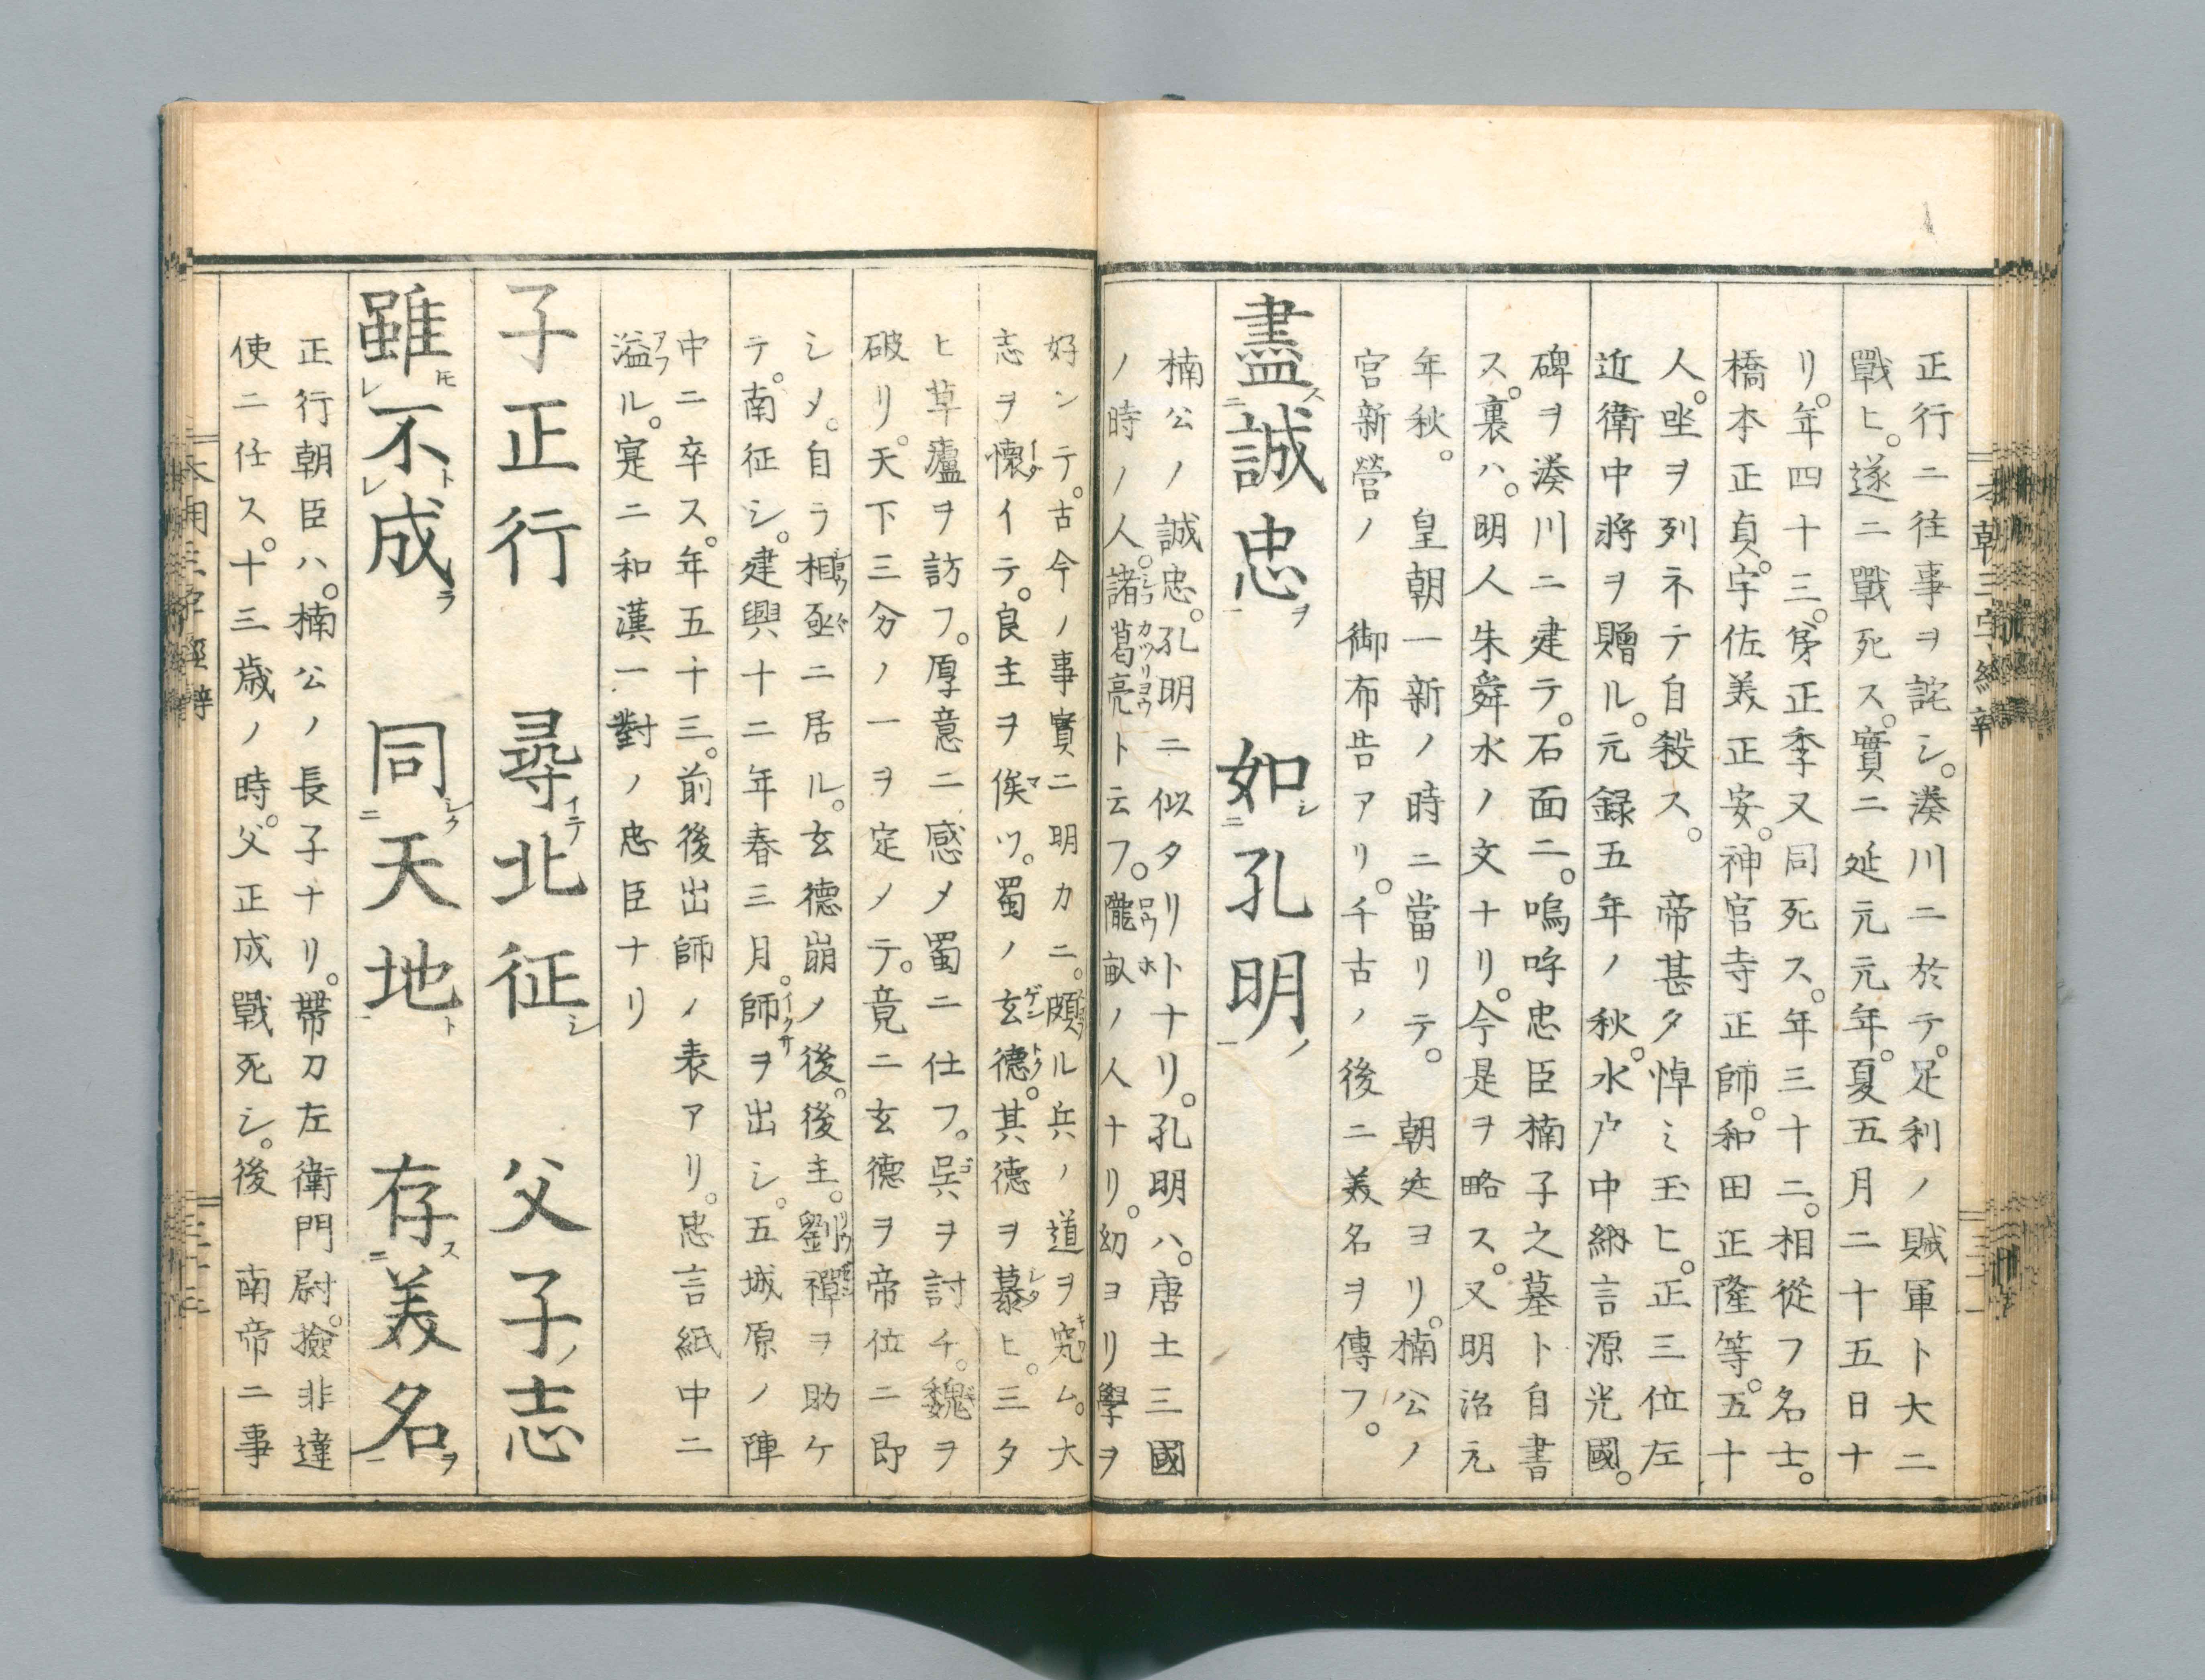 正行ニ往事ヲ詫シ。湊川ニ於テ。足利ノ賊軍ト大ニ
戰ヒ。遂ニ戰死ス。實ニ延元元年。夏五月二十五日ナ
リ。年四十三。弟正季又同死ス。年三十二。相從フ名士。
橋本正貞。宇佐美正安。神宮寺正師。和田正隆等。五十
人。坐ヲ列ネテ自殺ス。帝甚タ悼ミ玉ヒ。正三位左
近衛中將ヲ贈ル。元録五年ノ秋。水户中納言源光國。
碑ヲ湊川ニ建テ。石面ニ。嗚呼忠臣楠子之墓ト自書
ス。裏ハ。明人朱舜水ノ文ナリ。今是ヲ略ス。又明治元
年秋。皇朝一新ノ時ニ當リテ。朝廷ヨリ。楠公ノ
宮新營ノ御布告アリ。千古ノ後ニ美名ヲ傳フ。
盡ス二誠忠ヲ一 如シ二孔明ノ一
楠公ノ誠忠。孔明ニ似タリトナリ。孔明ハ。唐土三國
ノ時ノ人。諸葛亮ト云フ。隴畝ノ人ナリ。幼ヨリ學ヲ
好ンテ。古今ノ事實ニ明カニ。頗ル兵ノ道ヲ究ム。大
志ヲ懷イテ。良主ヲ俟ツ。蜀ノ玄德。其德ヲ慕ヒ。三タ
ヒ草廬ヲ訪フ。厚意ニ感メ蜀ニ仕フ。呉ヲ討チ。魏ヲ
破リ。天下三分ノ一ヲ定メテ。竟ニ玄德ヲ帝位ニ即
シメ。自ラ相丞ニ居ル。玄德崩ノ後。後主。劉禪ヲ助ケ
テ。南征シ。建興十二年春三月。師ヲ出シ。五城原ノ陣
中ニ卒ス。年五十三。前後出師ノ表アリ。忠言紙中ニ
溢ル。寔ニ和漢一對ノ忠臣ナリ
子正行 尋イテ北征シ 父子ノ志
雖レ𪜈不レト成ラ 同シク二天地ト一 存ス二美名ヲ一
正行朝臣ハ。楠公ノ長子ナリ。帶刀左衛門尉。撿非違
使ニ任ス。十三歳ノ時。父正成戰死シ。後 南帝ニ事